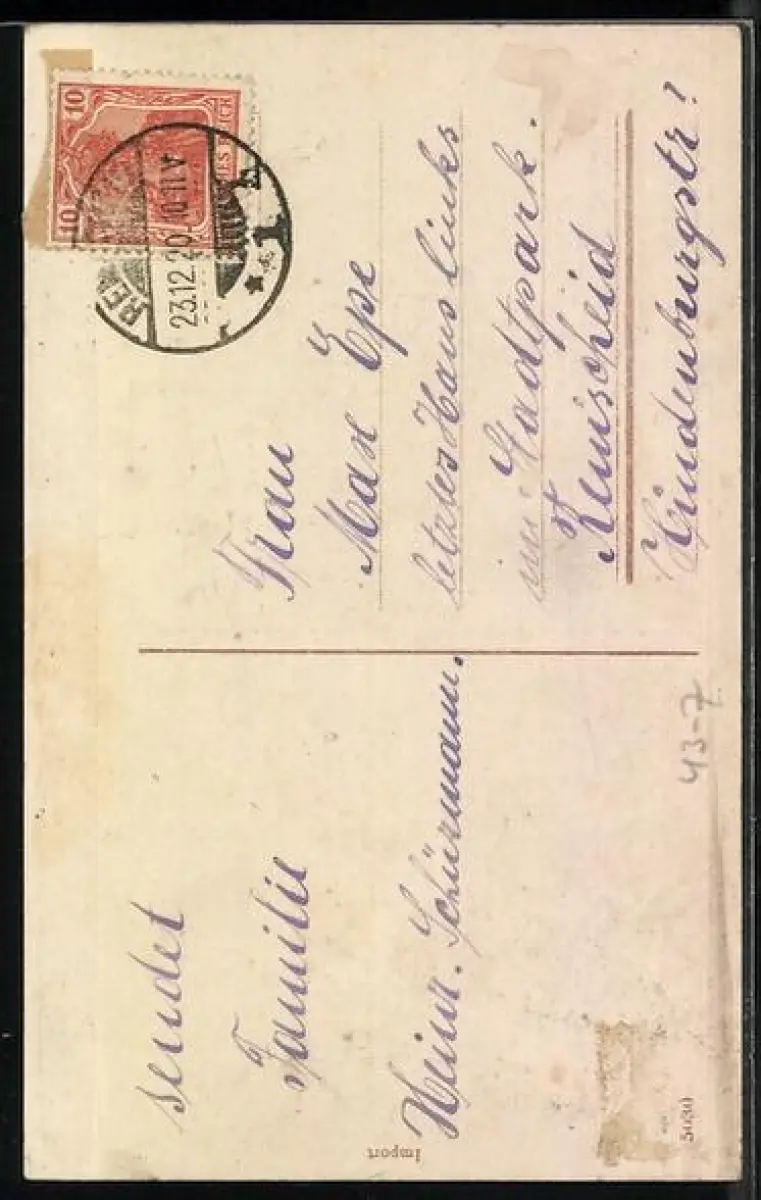 sendet
Familie
Heinr. Schürmann.
Import
5030
43-7
10 10
23.12.20. 10-11 V
* 1
Frau
Max Epe
letztes Haus links
im Stadtpark.
Remscheid
Hindenburgstr?